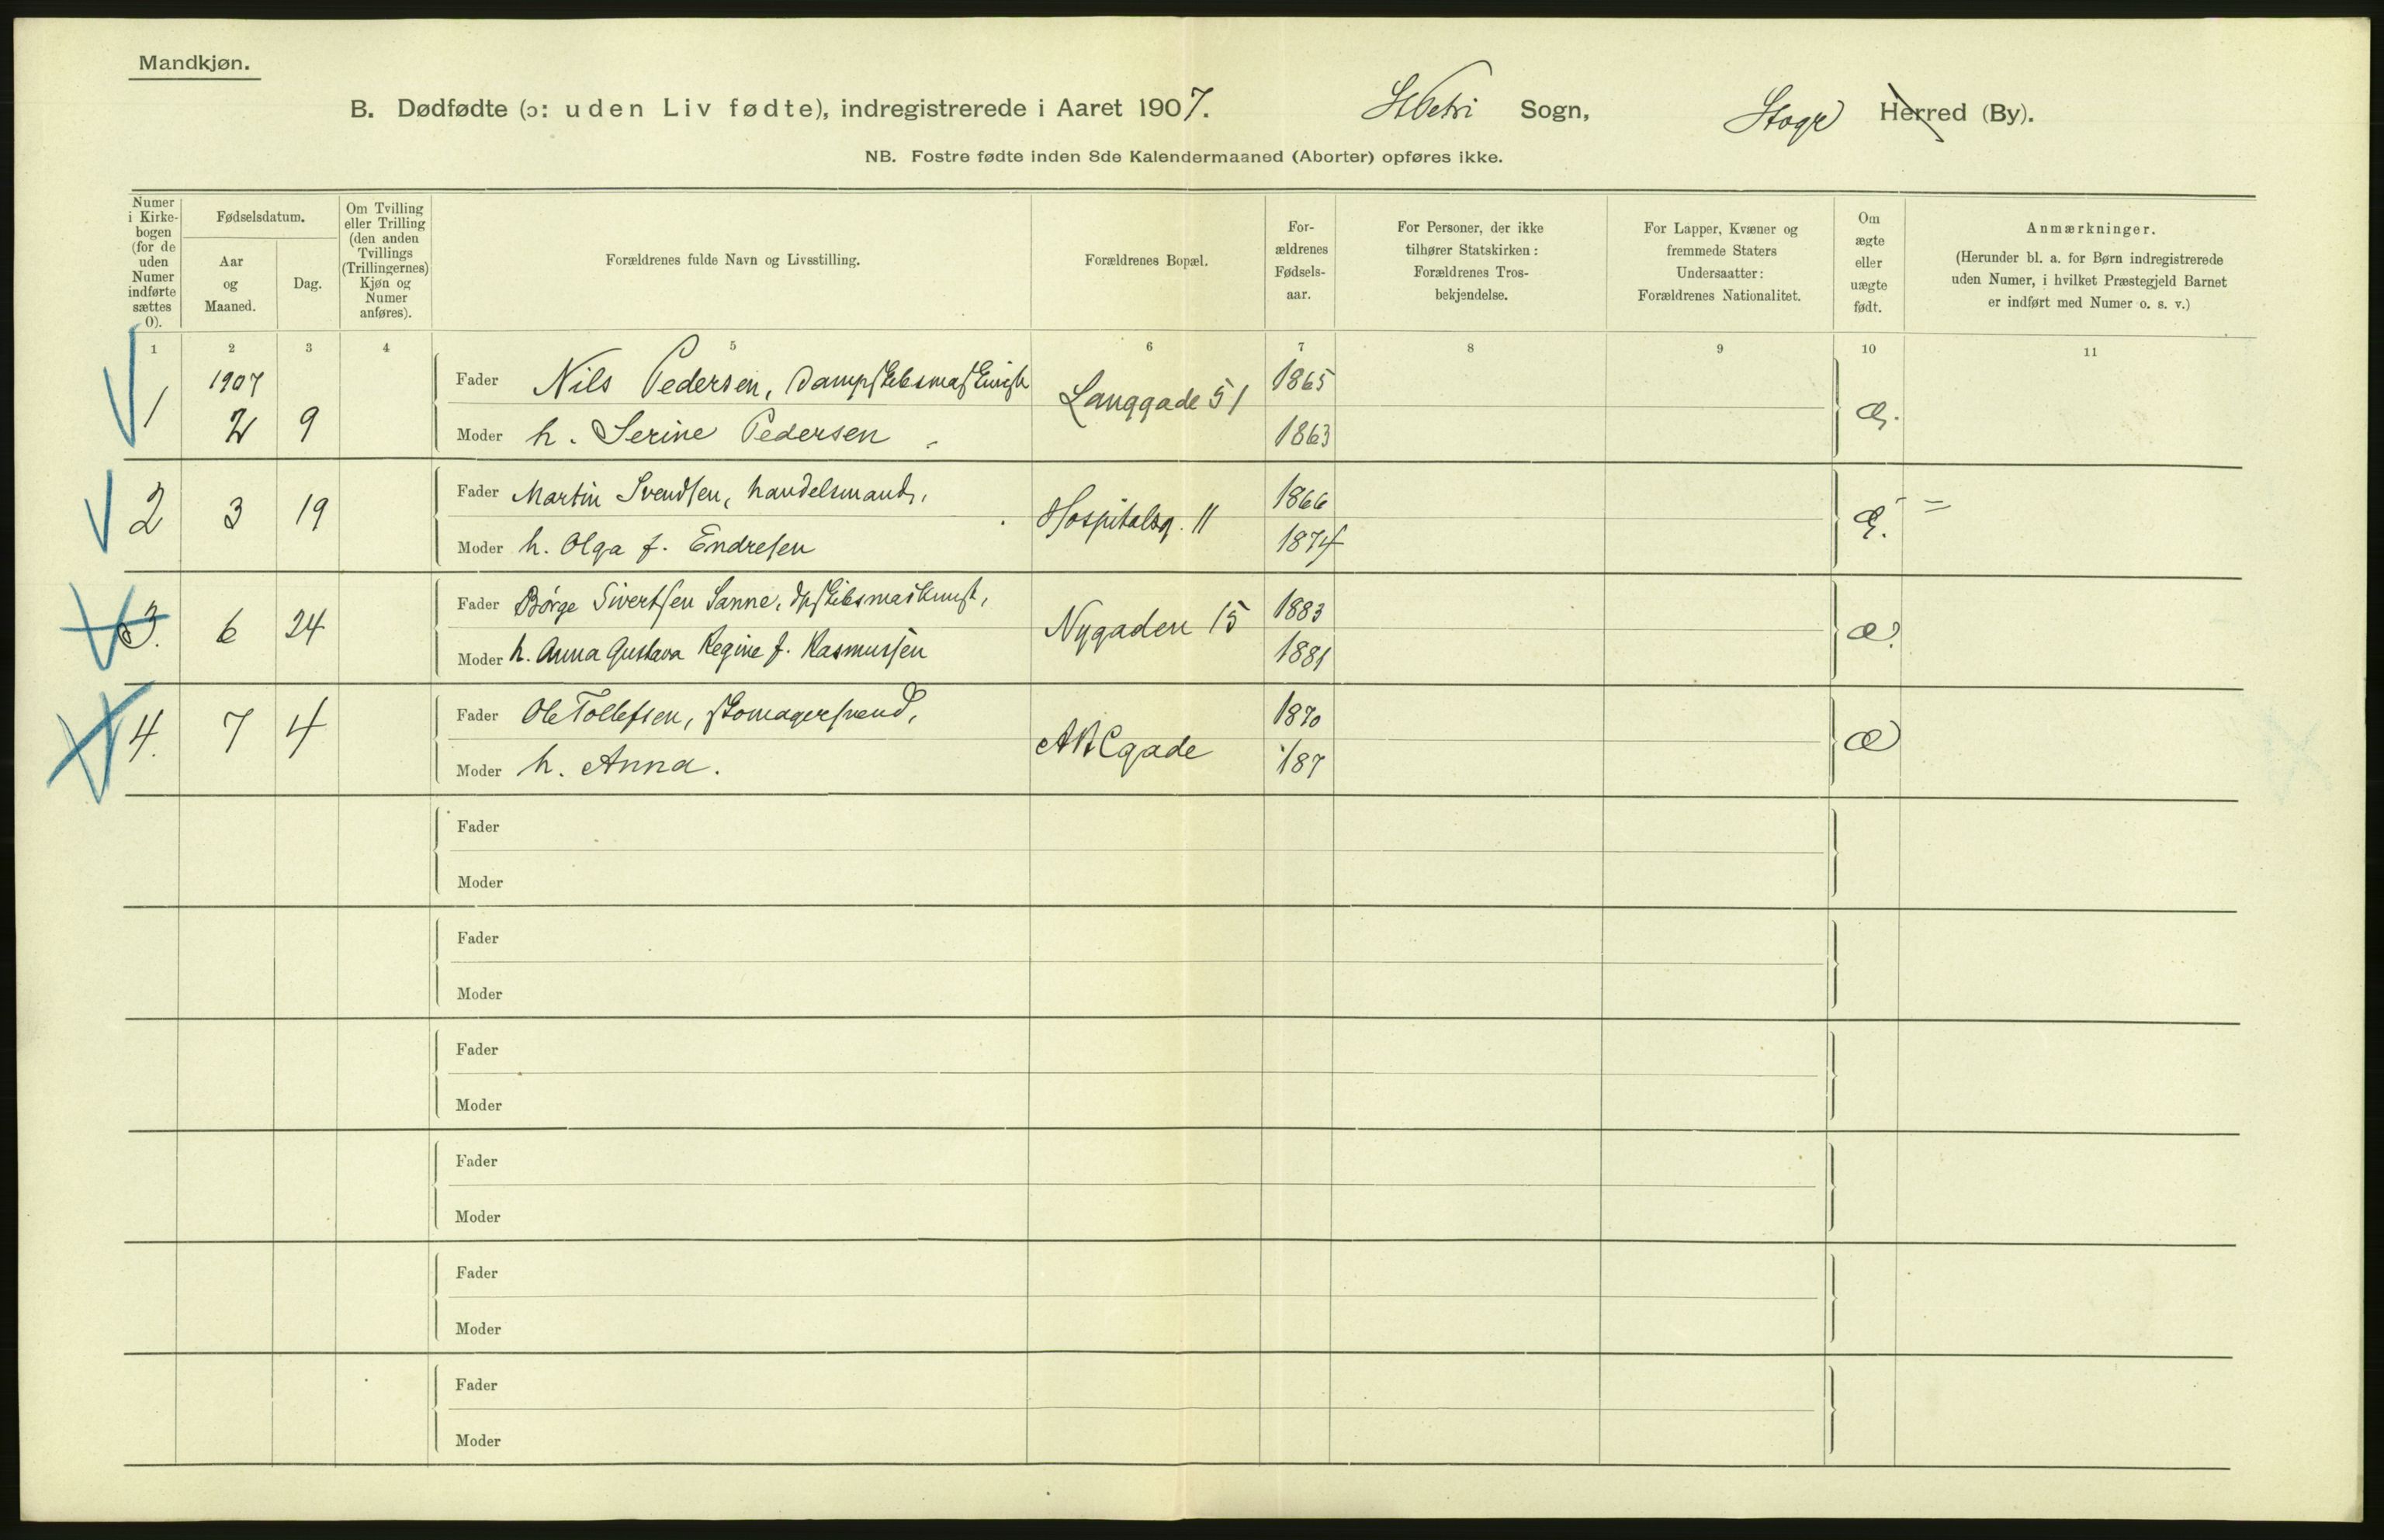 Mandkjøn.
B. Dødfødte (ɔ: uden Liv fødte), indregistrerede i Aaret 1907. St Petri Sogn, Stogr Herred (By).
NB. Fostre fødte inden 8de Kalendermaaned (Aborter) opføres ikke.
Numer i Kirke-bogen (for de uden Numer indførte sættes 0).
Fødselsdatum.
Aar og Maaned.
Dag.
Om Tvilling eller Trilling (den anden Tvillings (Trillingernes) Kjøn og Numer anføres).
Forældrenes fulde Navn og Livsstilling.
Forældrenes Bopæl.
For-ældrenes Fødsels-aar.
For Personer, der ikke tilhører Statskirken: Forældrenes Tros-bekjendelse.
For Lapper, Kvæner og fremmede Staters Undersaatter: Forældrenes Nationalitet.
Om ægte eller uægte født.
Anmærkninger.
(Herunder bl. a. for Børn indregistrerede uden Numer, i hvilket Præstegjeld Barnet er indført med Numer o. s. v.)
1 2 3 4 5 6 7 8 9 10 11
1907
1 2 9 Fader Nils Pedersen, Dampskibsmaskinist Langgade 51 1865 Æ.
Moder h. Serine Pedersen 1863
2 3 19 Fader Martin Svendsen, handelsmand, Hospitalsg. 11 1866 Æ. =
Moder h. Olga f. Endresen 1874
3. 6 24 Fader Børge Sivertsen Sanne, dpskibsmaskinist, Nygaden 15 1883 æ.
Moder h. Anna Gustava Regine f. Rasmussen 1881
4. 7 4 Fader Ole Tollefsen, skomagersvend, ABCgade 1870 æ
Moder h. Anna. 187
Fader
Moder
Fader
Moder
Fader
Moder
Fader
Moder
Fader
Moder
Fader
Moder